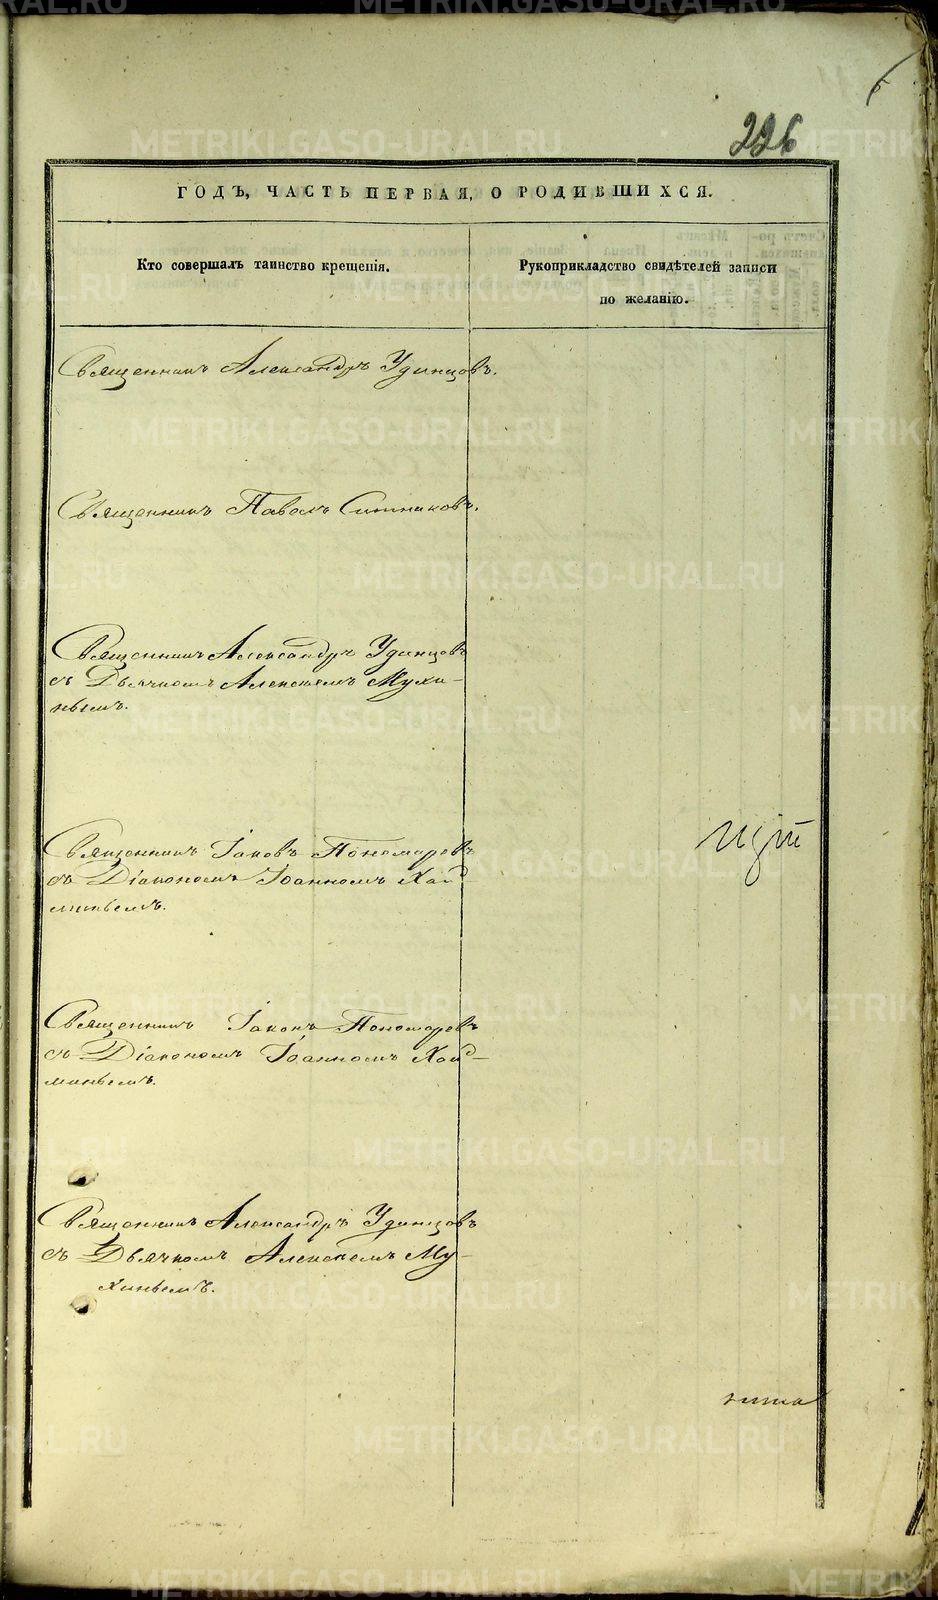 226
ГОДЪ, ЧАСТЬ ПЕРВАЯ, О РОДИВШИХСЯ.
Кто совершалъ таинство крещенія.
Рукоприкладство свидѣтелей записи
по желанію.
Священникъ Александръ Удинцовъ.
Священникъ Павелъ Ситниковъ.
Священникъ Александръ Удинцовъ
съ Дьячкомъ Алексѣемъ Мухи-
нымъ.
Священникъ Іаковъ Пономаревъ
съ Діакономъ Іоанномъ
Священникъ Іаковъ Пономаревъ
съ Діакономъ Іоанномъ
Священникъ Александръ Удинцовъ
съ Дьячкомъ Алексѣемъ Му-
хинымъ.
METRIKI.GASO-URAL.RU